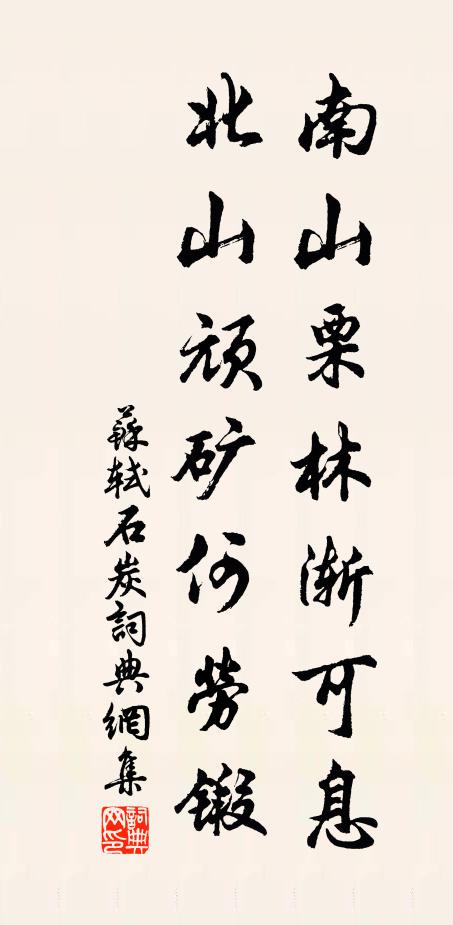 南山栗林渐可息
北山顽矿何勞鍛
蘇轼石炭詞典網集
詞典网印